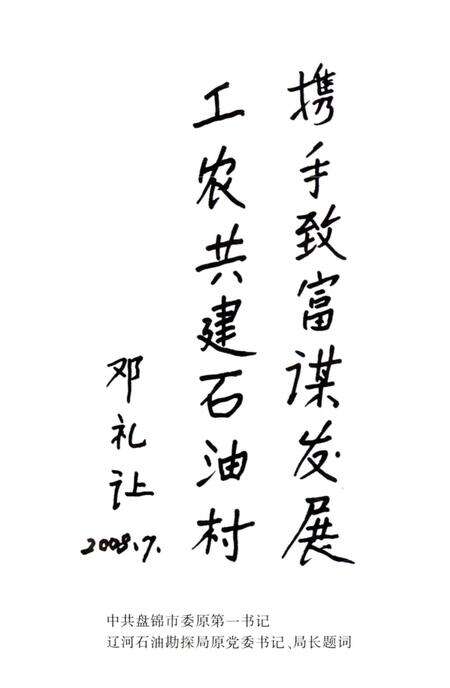 携手致富谋发展
工农共建石油村
邓礼让
2008.7.
中共盘锦市委原第一书记
辽河石油勘探局原党委书记、局长题词